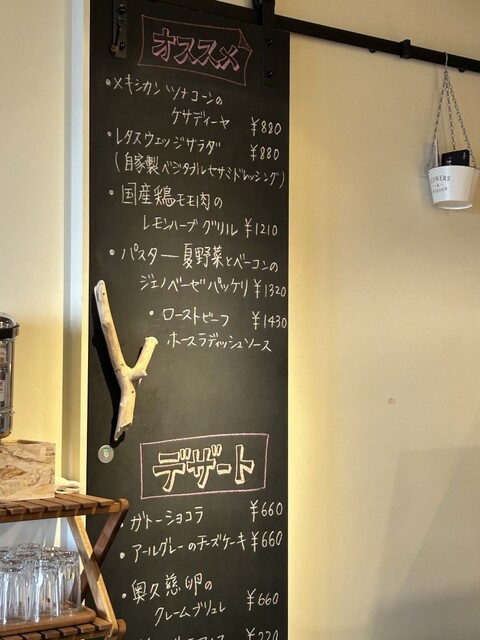 オススメ
・メキシカンツナコーンの
ケサディーヤ ¥880
・レタスウェッジサラダ ¥880
(自家製ベジタブルセサミドレッシング)
・国産鶏モモ肉の
レモンハーブグリル ¥1210
・パスター夏野菜とベーコンの
ジェノベーゼパッケリ ¥1320
・ローストビーフ ¥1430
ホースラディッシュソース
デザート
・ガトーショコラ ¥660
・アールグレーのチーズケーキ ¥660
・奥久慈卵の
クレームブリュレ ¥660